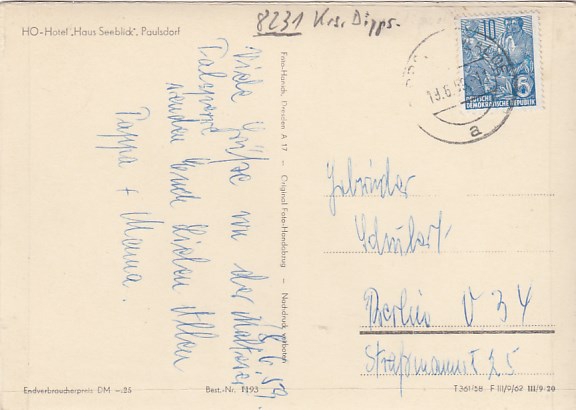 HO-Hotel „Haus Seeblick", Paulsdorf
8231 Krs. Dipps.
19.6.
a
5
DEUTSCHE
DEMOKRATISCHE REPUBLIK
18.6.59.
Viele Grüße von der Malter
Talsperre
senden Euch Lieben Allen
Pappa + Mama.
Foto-Hanich, Dresden A 17 – Original Foto-Handabzug – Nachdruck verboten
Gebrüder
Schubert
Berlin V 34
Straßmannst 25
Endverbraucherpreis DM –.25
Best.-Nr. 1193
T 361/58 F III/9/62 III/9-20